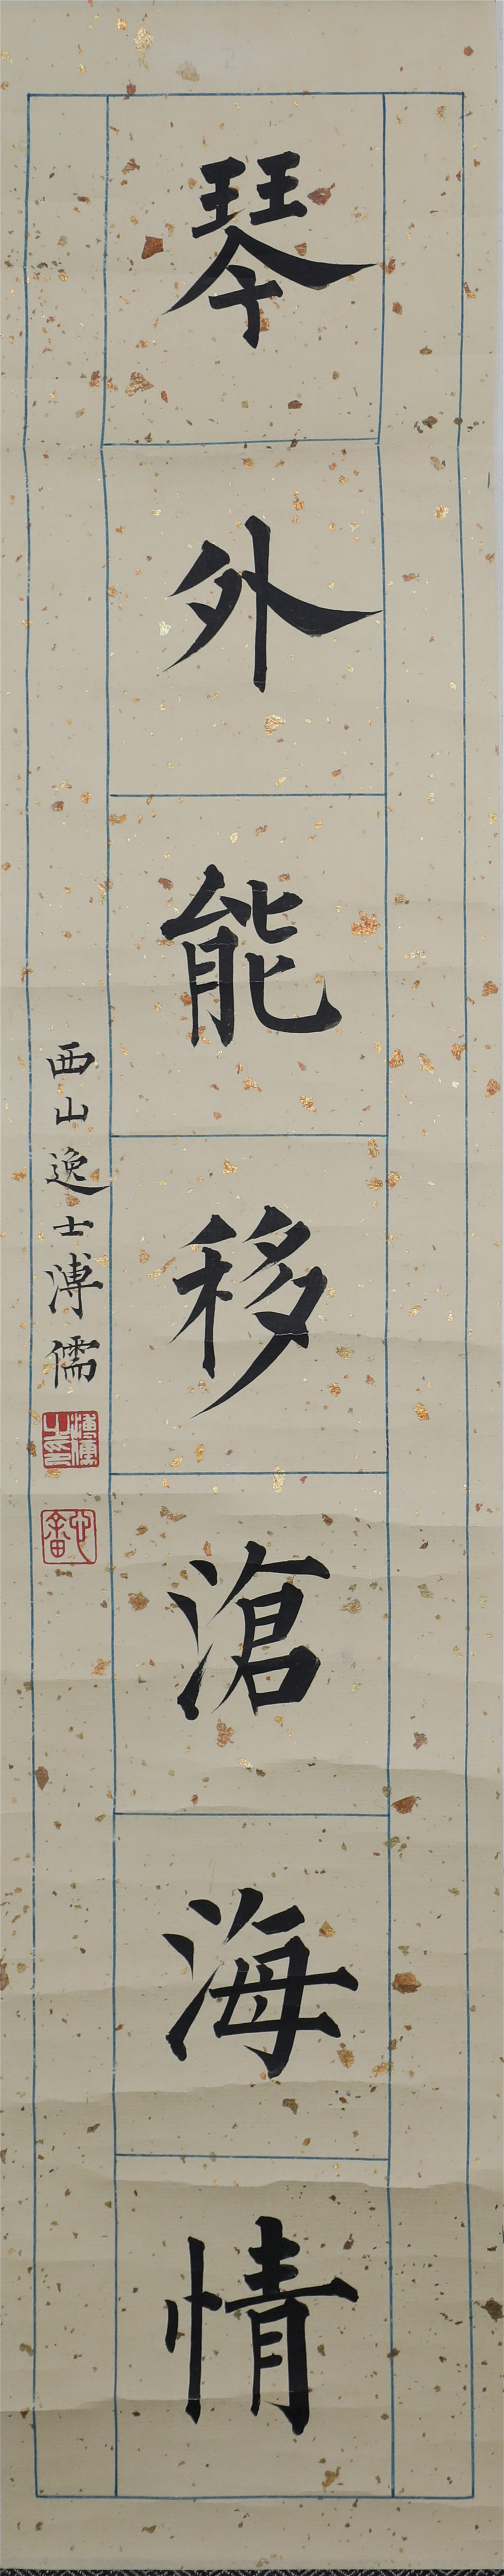 琴外能移滄海情
西山逸士溥儒
溥儒之印